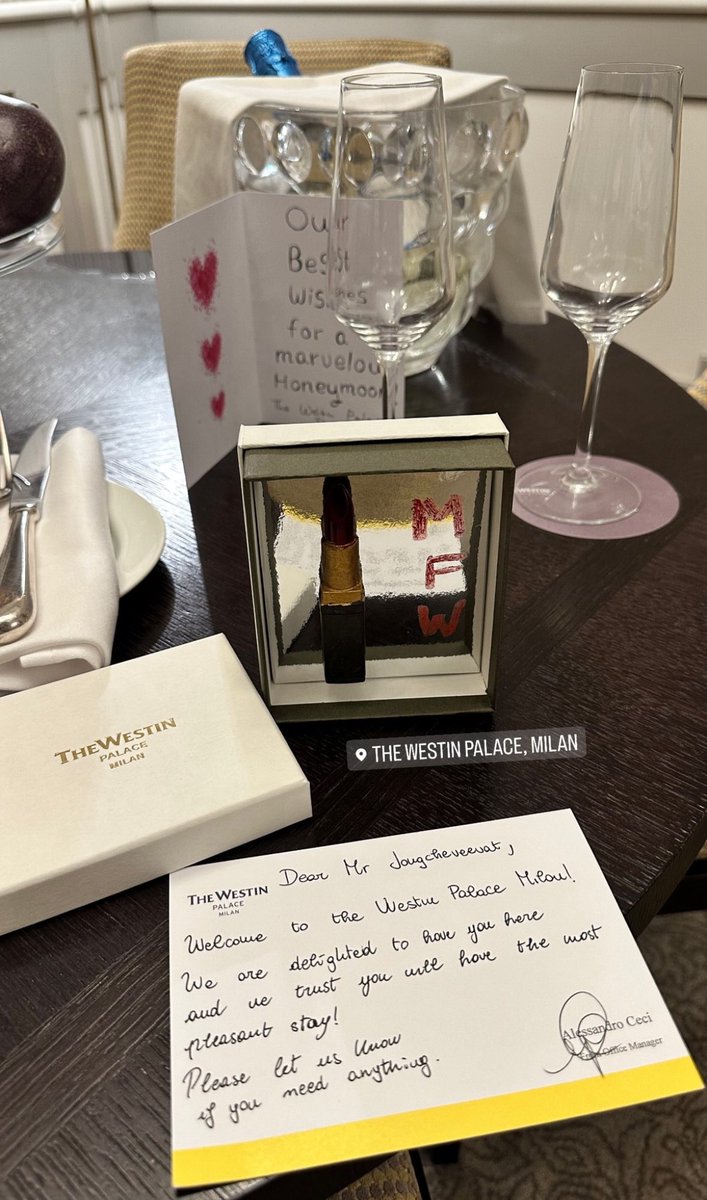 Our
Best
Wishes
for a
marvelou
Honeymoon
The Westin
M
F
W
THE WESTIN
PALACE
MILAN
THE WESTIN PALACE, MILAN
THE WESTIN
PALACE
MILAN
Dear Mr Jongcheveevat,
Welcome to the Westin Palace Milan!
We are delighted to have you here
and we trust you will have the most
pleasant stay!
Please let us know
if you need anything.
Alessandro Ceci
Office Manager